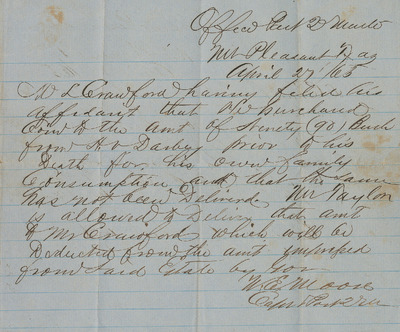 Office Post Q Master
Mt Pleasant Tex
April 27 / 65
W L Crawford having filed his
affidavit that he purchased
Corn to the amt of Ninety (90) Bush
from H V Darby prior to his
Death for his own family
Consumption and that the same
has not been Deliverd. Mr Taylor
is allowed to Deliver that amt
to Mr Crawford which will be
Deducted from the amt impressed
from said Estate by
W. C. Moore
Capt &